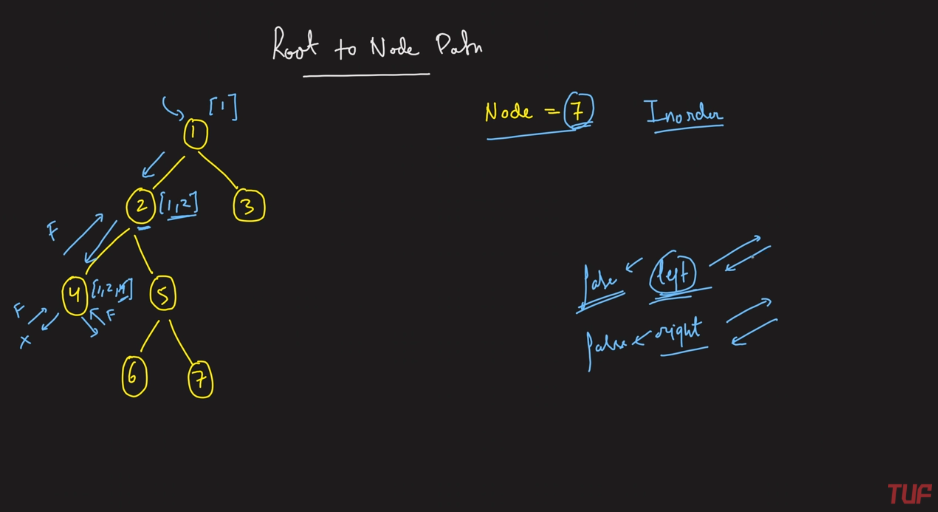 Root to Node Path
Node = 7
Inorder
[1]
1
2
[1,2]
3
F
4
[1,2,4]
5
F
F
x
6
7
false
left
false
right
TUF